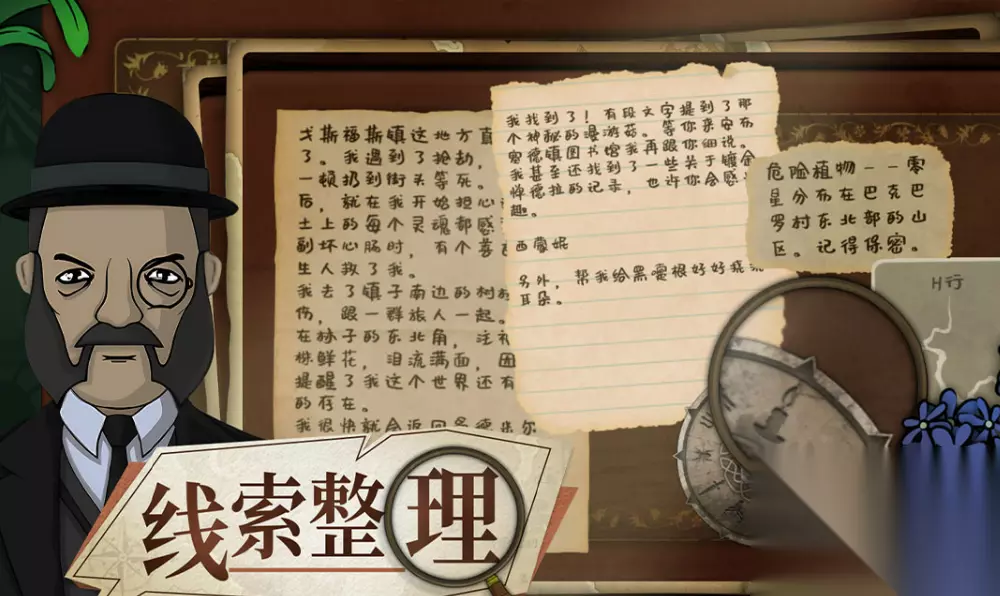 戈斯福斯镇这地方真
了。我遇到了抢劫，
一顿扔到街头等死。
后，就在我开始担心
土上的每个灵魂都感
副坏心肠时，有个善
生人救了我。
我去了镇子南边的树
伤，跟一群旅人一起。
在林子的东北角，注
株鲜花，泪流满面，因
提醒了我这个世界还有
的存在。
我很快就会返回
我找到了！有段文字提到了那
个神秘的漫游菇。等你亲安布
寇德镇图书馆我再跟你细说。
我甚至还找到了一些关于镀金
悼德拉的记录，也许你会感
趣。
西蒙妮
另外，帮我给黑雯根好好挠挠
耳朵。
危险植物——零
星分布在巴克巴
罗村东北部的山
区。记得保密。
H行
线索整理